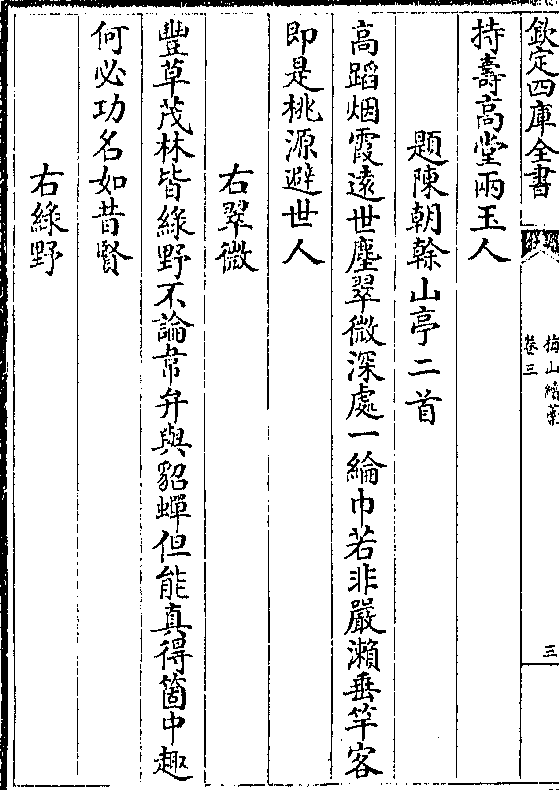 欽定四庫全書
梅山續藁
卷三
三
持壽髙堂兩玉人
題陳朝榦山亭二首
髙蹈烟霞逺世塵翠微深處一綸巾若非嚴瀨垂竿客
即是桃源避世人
右翠微
豐草茂林皆綠野不論韋弁與貂蟬但能真得箇中趣
何必功名如昔賢
右綠野